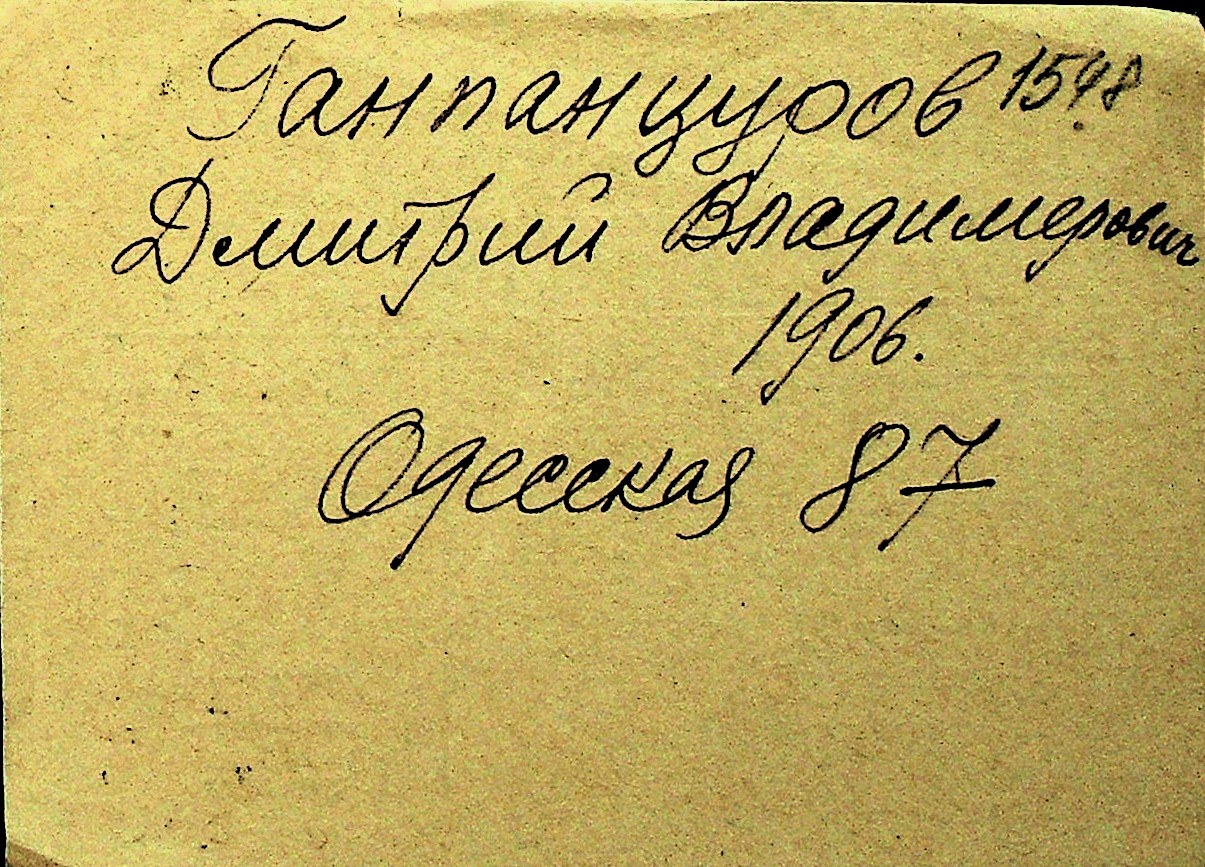 Ганпанцуров 1548
Дмитрий Владимерович
1906.
Одесская 87